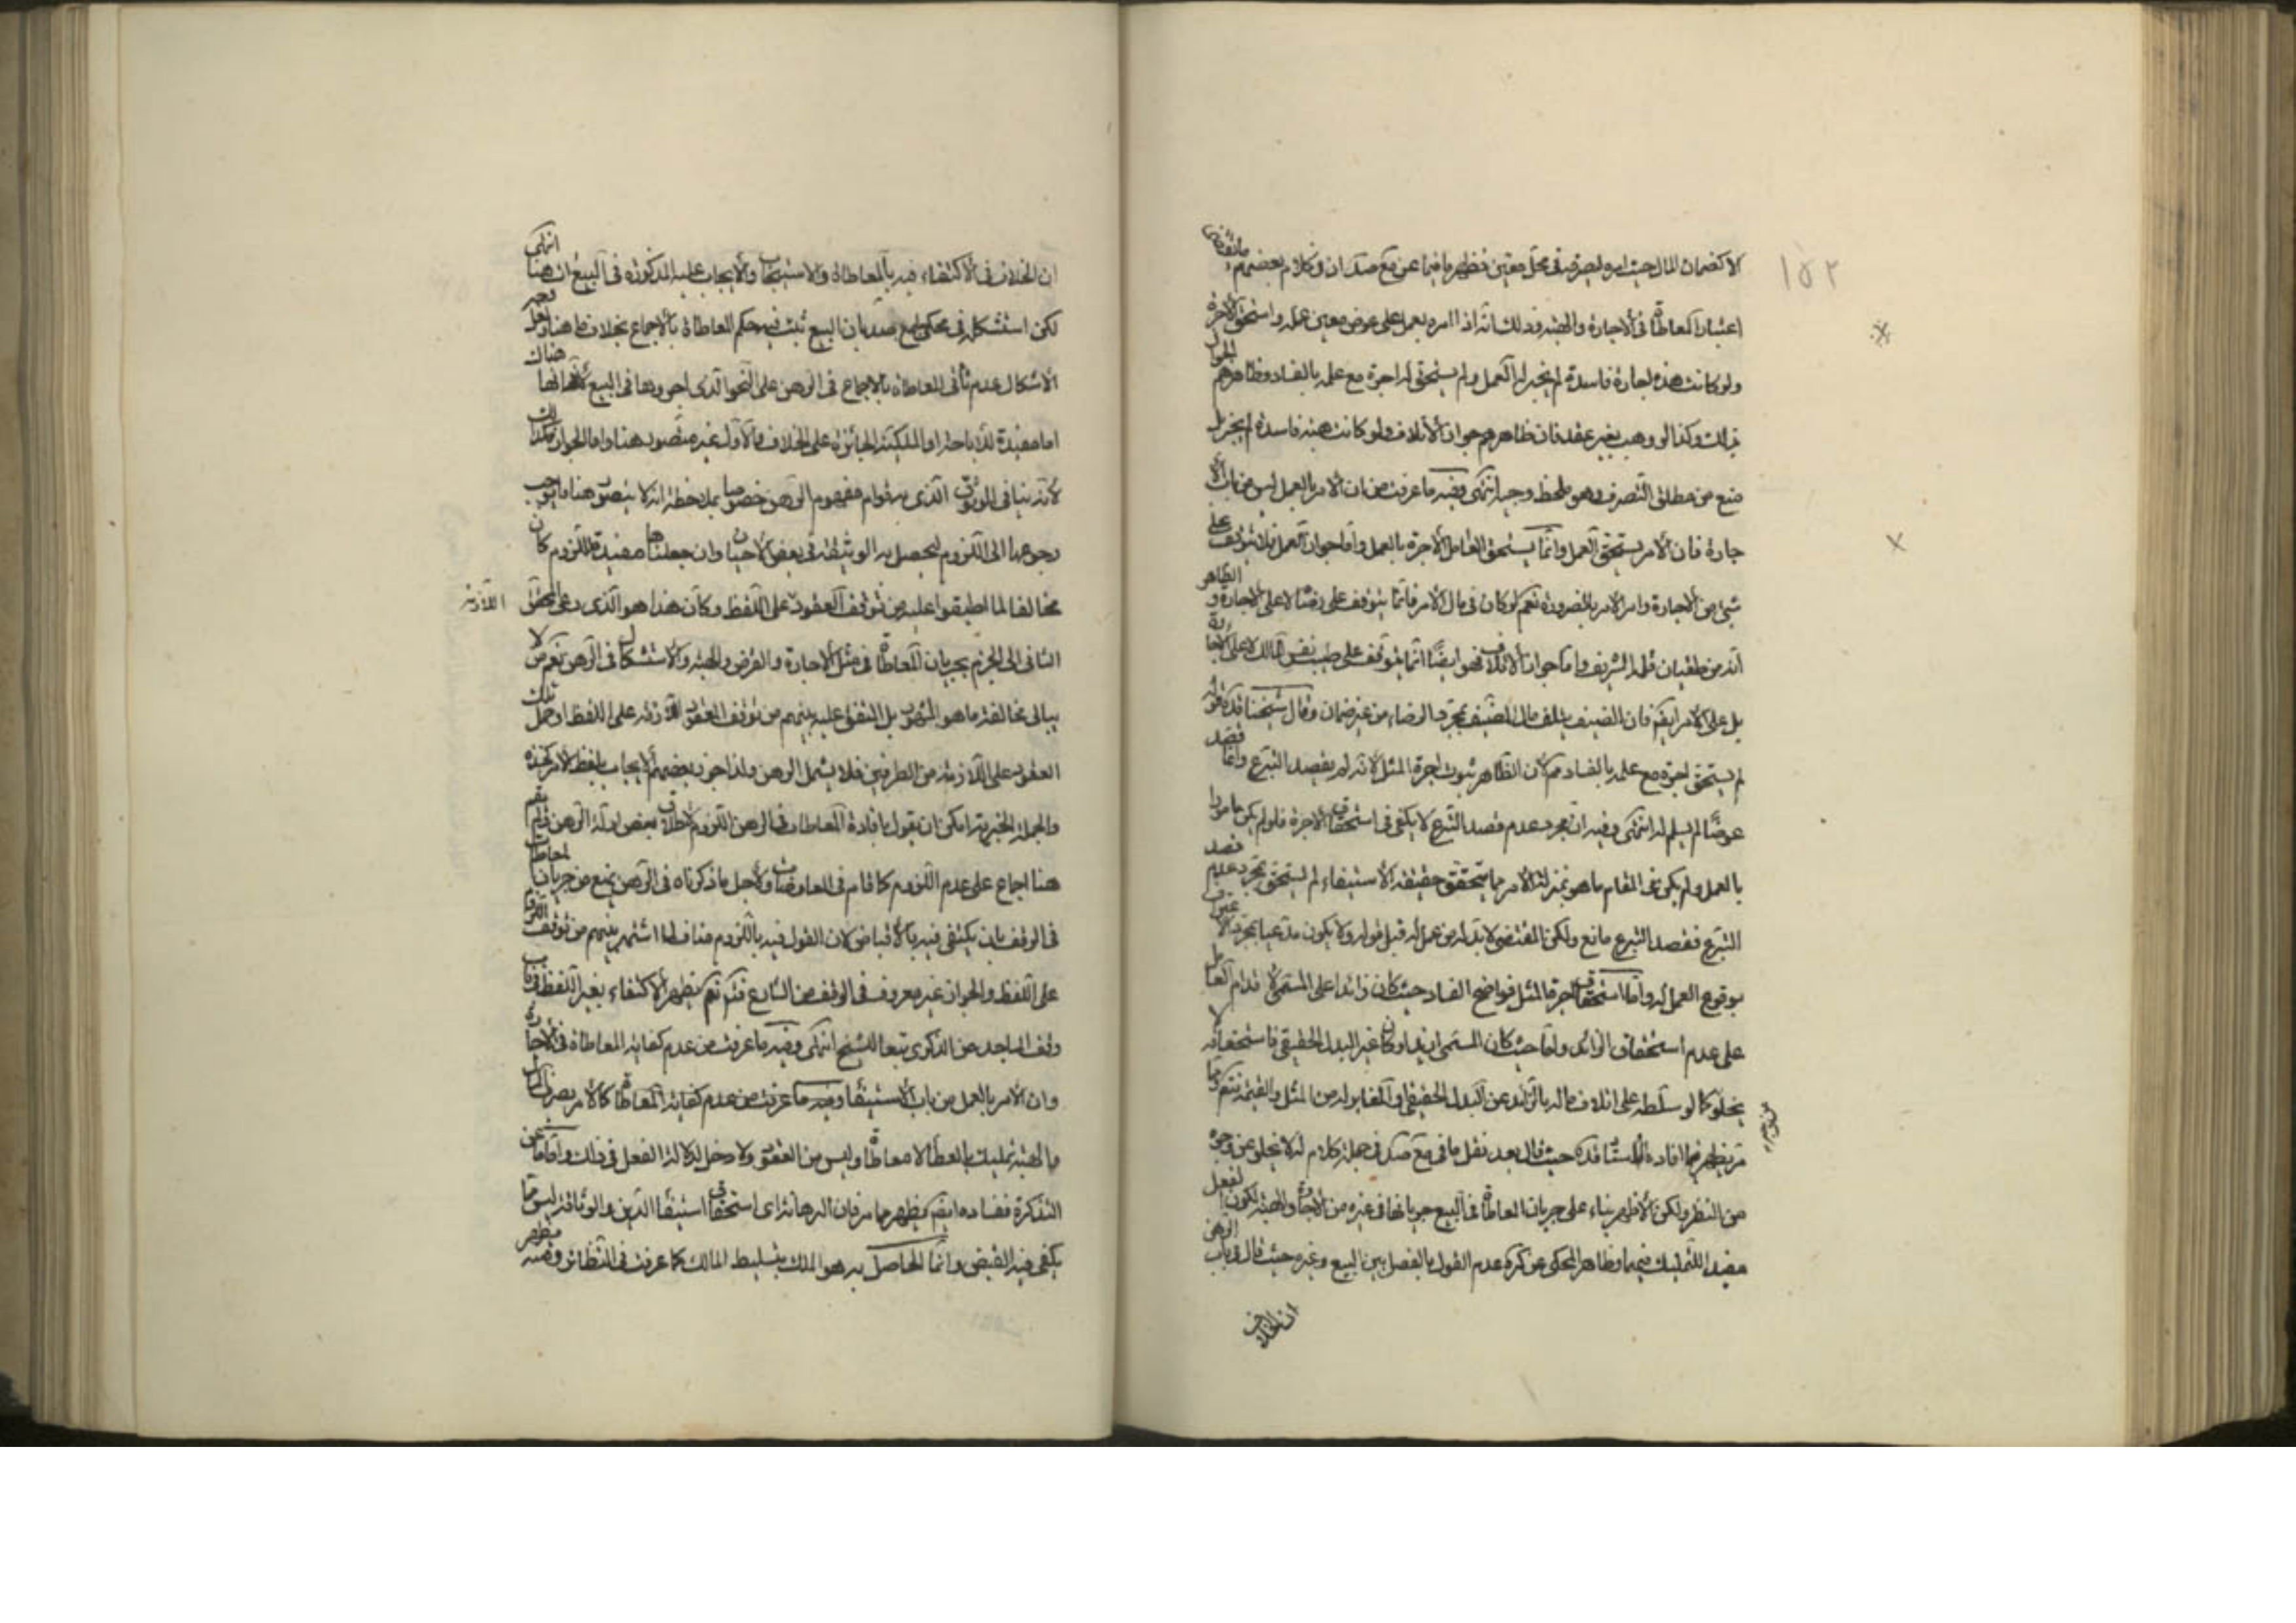 ١٥٢
لا كضمان المال حيث امره لصرفه في محل معين فظهر ما فيما عن مع صد ان في كلام بعضهم ما يقتضي
اعتبار المعاطاة في الاجارة والهبة وذلك انه اذا امره بعمل على عوض معين عمله واستحق الاجرة
ولو كانت هذه اجارة فاسدة لم يجز له العمل ولم يستحق له اجرة مع علمه بالفساد وظاهرهم الجواز
بذلك وكذا لو وهب بغير عقد فان ظاهرهم جواز الاتلاف ولو كانت هبة فاسدة لم يجز بل
منع من مطلق التصرف وهو ملحظ وجيه انتهى وفيه ما عرفت من ان الامر بالعمل ليس من باب الا
جارة فان الامر يستحق العمل وانما يستحق العامل الاجرة بالعمل واما جواز العمل فلا يتوقف على
شيء من الاجارة وامر الامر بالضرورة نعم لو كان في مال الامر فانما يتوقف على رضاه لا على الاجارة و الظاهر
انه من طغيان قلمه الشريف واما جواز الاتلاف فهو ايضا انما يتوقف على طيب نفس المالك لا على الاجارة
بل على الامر ايضا فان الضيف يتلف مال المضيف بمجرد الرضاء من غير ضمان وقال شيخنا قده قوله
لم يستحق اجرة مع علمه بالفساد مم لان الظاهر ثبوت اجرة المثل لانه لم يقصد التبرع وانما قصد
عوضا لم يسلم له انتهى وفيه ان مجرد عدم قصد التبرع لا يكفي في استحقاق الاجرة فلو لم يكن مامورا
بالعمل ولم يكن في المقام ما هو بمنزلة الامر مما يتحقق حقيقة الاستيفاء لم يستحق بمجرد عدم قصد
التبرع فقصد التبرع مانع ولكن المقتضي لا بد له من عمل له قبل قوله ولا يكون مدعيا بمجرد الاعتراف
بوقوع العمل له واما استحقاق اجرة المثل فواضح الفساد حيث كان زائدا على المسمى لاقدام العامل
على عدم استحقاق الزائد واما حيث كان المسمى ازيد او كان غير البدل الحقيقي فاستحقاقه لا
يخلو كما لو سلطه على اتلاف ماله بالزائد عن البدل الحقيقي او المغاير له من المثل والقيمة فتم ومما
مر يظهر ما افاده الاستاد قده حيث قال بعد نقل ما في مع صد في جملة كلام له لا يخلو عن وجوه
من النظر ولكن الاظهر بناء على جريان المعاطاة في البيع جريانها في غيره من الاجارة والهبة لكون الفعل
مفيدا للتمليك فيهما وظاهر المحكي عن كره عدم القول بالفصل بين البيع وغيره حيث قال في باب الرهن
ان الخلاف
ان الخلاف في الاكتفاء فيه بالمعاطاة والاستيجاب والايجاب عليه المذكورة في البيع ات هنا انتهى
لكن استشكله في محكي مع صد بان البيع ثبت فيه حكم المعاطاة بالاجماع بخلاف ما هنا ولعل وجه
الاشكال عدم تأتي المعاطاة بالاجماع في الرهن على النحو الذي اجروها في البيع لانها هناك
اما مفيدة للاباحة او الملكية الجائزة على الخلاف والاول غير متصور هنا واما الجواز فكذلك
لانه ينافي الوثوق الذي به قوام مفهوم الرهن خصوصا بملاحظة انه لا يتصور هنا ما يوجب
رجوعها الى اللزوم ليحصل به الوثيقة في بعض الاحيان وان جعلناها مفيدة للزوم كان
مخالفا لما اطبقوا عليه من توقف العقود على اللفظ وكان هذا هو الذي دعى المحقق
اللازمة
الثاني الى الجزم بجريان المعاطاة في مثل الاجارة والقرض والهبة والاستشكال في الرهن نعم من لا
يبالي مخالفة ما هو المشهور بل المتفق عليه بينهم من توقف العقود اللازمة على اللفظ او حمل تلك
العقود على اللازمة من الطرفين فلا يشمل الرهن ولذا جوز بعضهم الايجاب بلفظ الامر كخذه
والجملة الخبرية امكن ان يقول بافادة المعاطات في الرهن اللزوم لاطلاق بعض ادلة الرهن ولم يقم
هنا اجماع على عدم اللزوم كما قام في المعاوضات ولاجل ما ذكرناه في الرهن يمنع من جريان المعاطاة
في الوقف بان يكتفى فيه بالاقباض لان القول فيه باللزوم مناف لما اشتهر بينهم من توقف اللزوم
على اللفظ والجواز غير معروف في الوقف من الشارع فتم نعم يظهر الاكتفاء بغير اللفظ في باب
وقف المساجد عن الذكرى تبعا للشيخ انتهى وفيه ما عرفت من عدم كفاية المعاطاة في الاجارة
وان الامر بالعمل من باب الاستيفاء وفيه ما عرفت من عدم كفاية المعاطاة كالامر بصرف المال
والهبة تمليك بالعطاء لا معاطاة وليس من العقود ولا دخل لدلالة الفعل في ذلك واما ما عن
التذكرة ففساده ايضا يظهر مما مر فان الرهانة اي استحقاق استيفاء الدين والوثاقة ليس مما
يكفي فيه القبض وانما الحاصل به هو الملك بتسليط المالك كما عرفت في النظائر وفيه يظهر